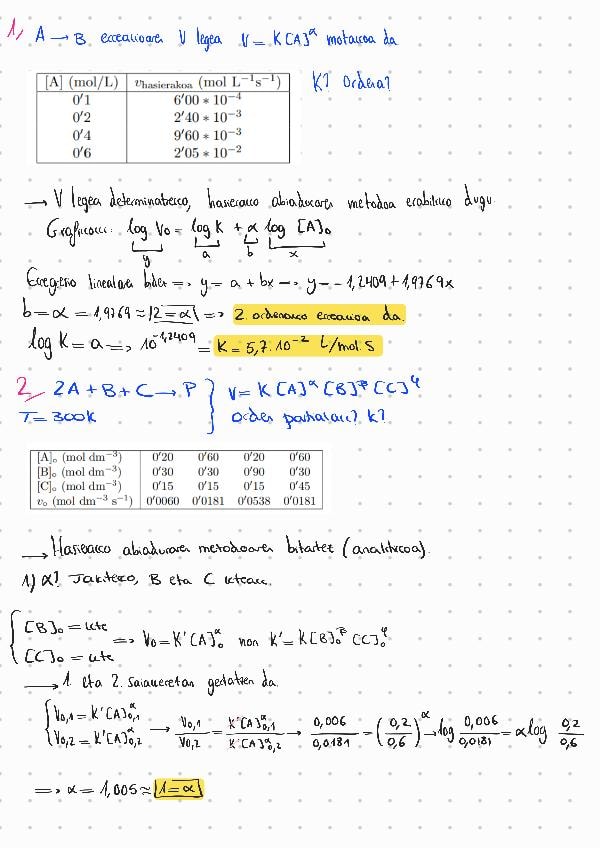 1, A → B erreakzioaren V legea V = K[A]^α motakoa da
[A] (mol/L) v_hasierakoa (mol L^−1 s^−1) K? Ordena?
0'1 6'00 * 10^−4
0'2 2'40 * 10^−3
0'4 9'60 * 10^−3
0'6 2'05 * 10^−2
→ V legea determinatzeko, hasierako abiaduraren metodoa erabiliko dugu.
Grafikoki: log V₀ = log K + α log [A]₀
y a b x
Erregresio lineala bidez => y = a + bx → y = -1,2409 + 1,9769x
b = α = 1,9769 ≈ 2 = α => 2. ordenako erreakzioa da.
log K = a => 10^-1,2409 = K = 5,7·10^-2 L/mol·s
2, 2A + B + C → P } V = K[A]^α [B]^β [C]^φ
T = 300K Orden partzialak? K?
[A]₀ (mol dm^−3) 0'20 0'60 0'20 0'60
[B]₀ (mol dm^−3) 0'30 0'30 0'90 0'30
[C]₀ (mol dm^−3) 0'15 0'15 0'15 0'45
v₀ (mol dm^−3 s^−1) 0'0060 0'0181 0'0538 0'0181
→ Hasierako abiaduraren metodoaren bitartez (analitikoa).
1) α? Jakiteko, B eta C kteak.
{ [B]₀ = kte
[C]₀ = kte => V₀ = K'[A]₀^α non K' = K[B]₀^β [C]₀^φ
→ 1. eta 2. saiakeretan gertatzen da.
{ V₀,₁ = K'[A]^α₀,₁
V₀,₂ = K'[A]^α₀,₂ → V₀,₁/V₀,₂ = K'[A]^α₀,₁/K'[A]^α₀,₂ → 0,006/0,0181 = (0,2/0,6)^α → log 0,006/0,0181 = α log 0,2/0,6
=> α = 1,005 ≈ 1 = α